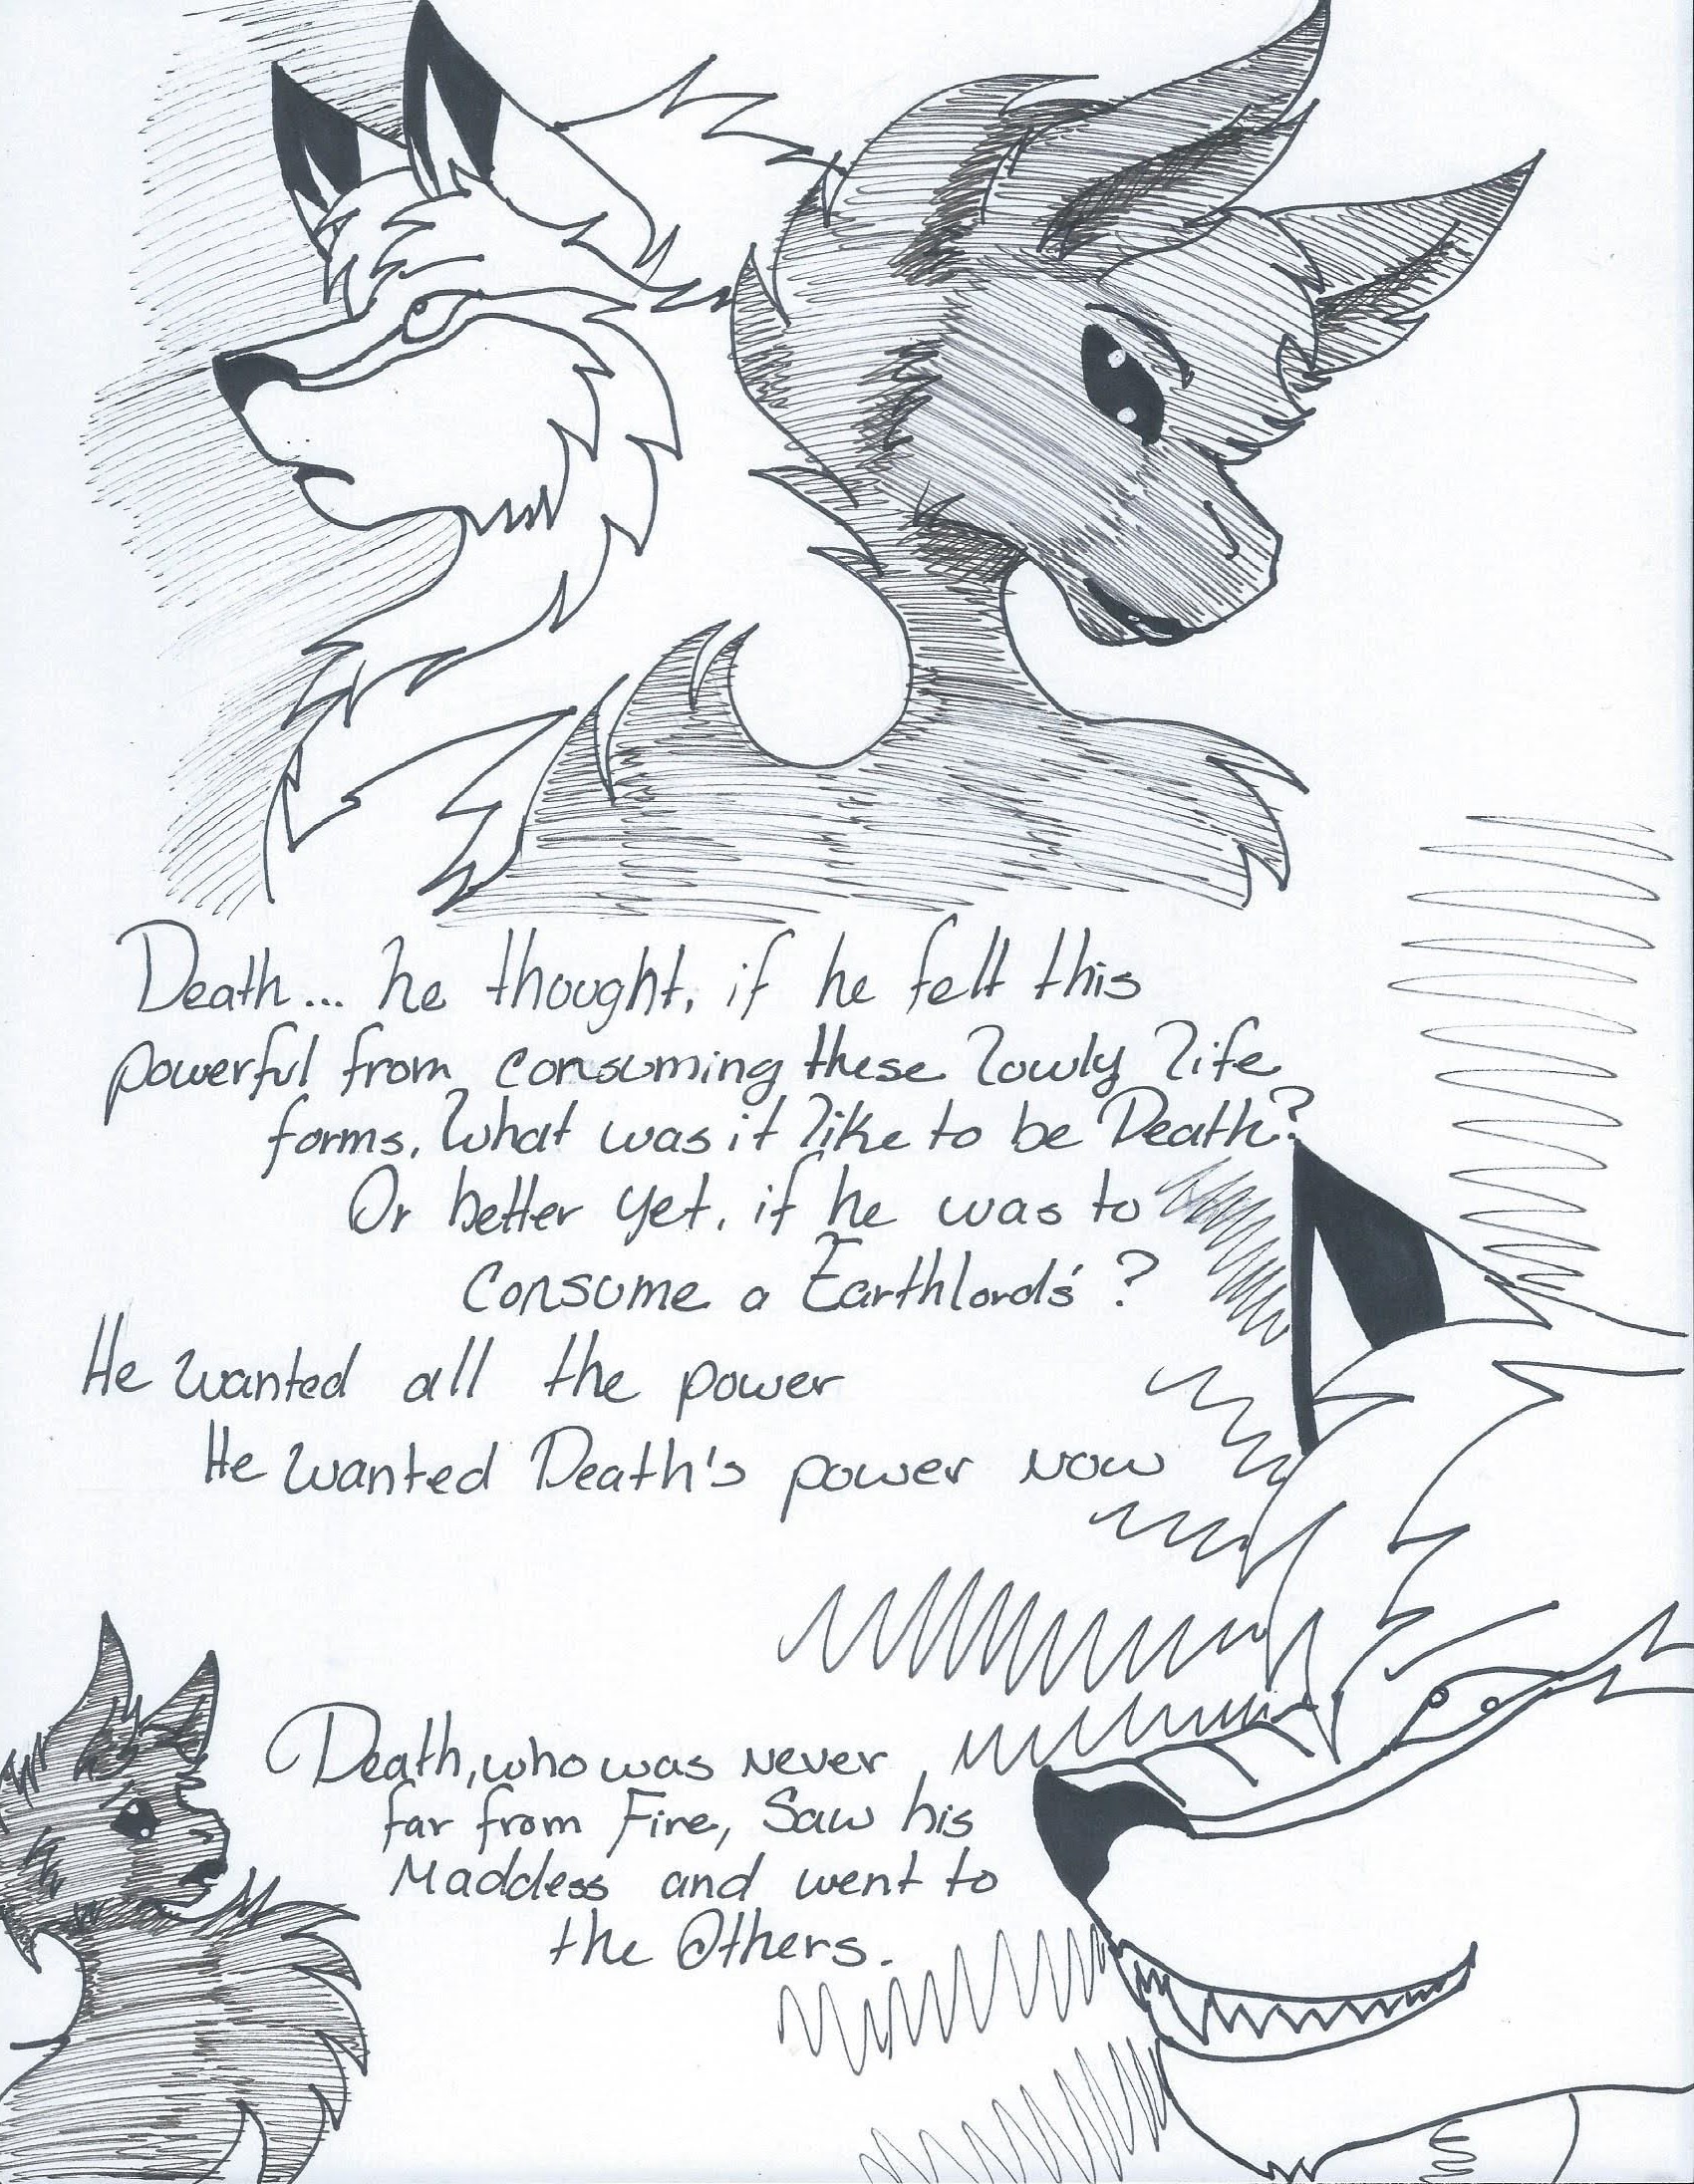 Death... he thought, if he felt this
powerful from consuming these lowly life
forms, What was it like to be Death?
Or better yet, if he was to
consume a Earthlord's ?
He wanted all the power
He wanted Death's power now
Death, who was never
far from Fire, Saw his
Maddess and went to
the Others.